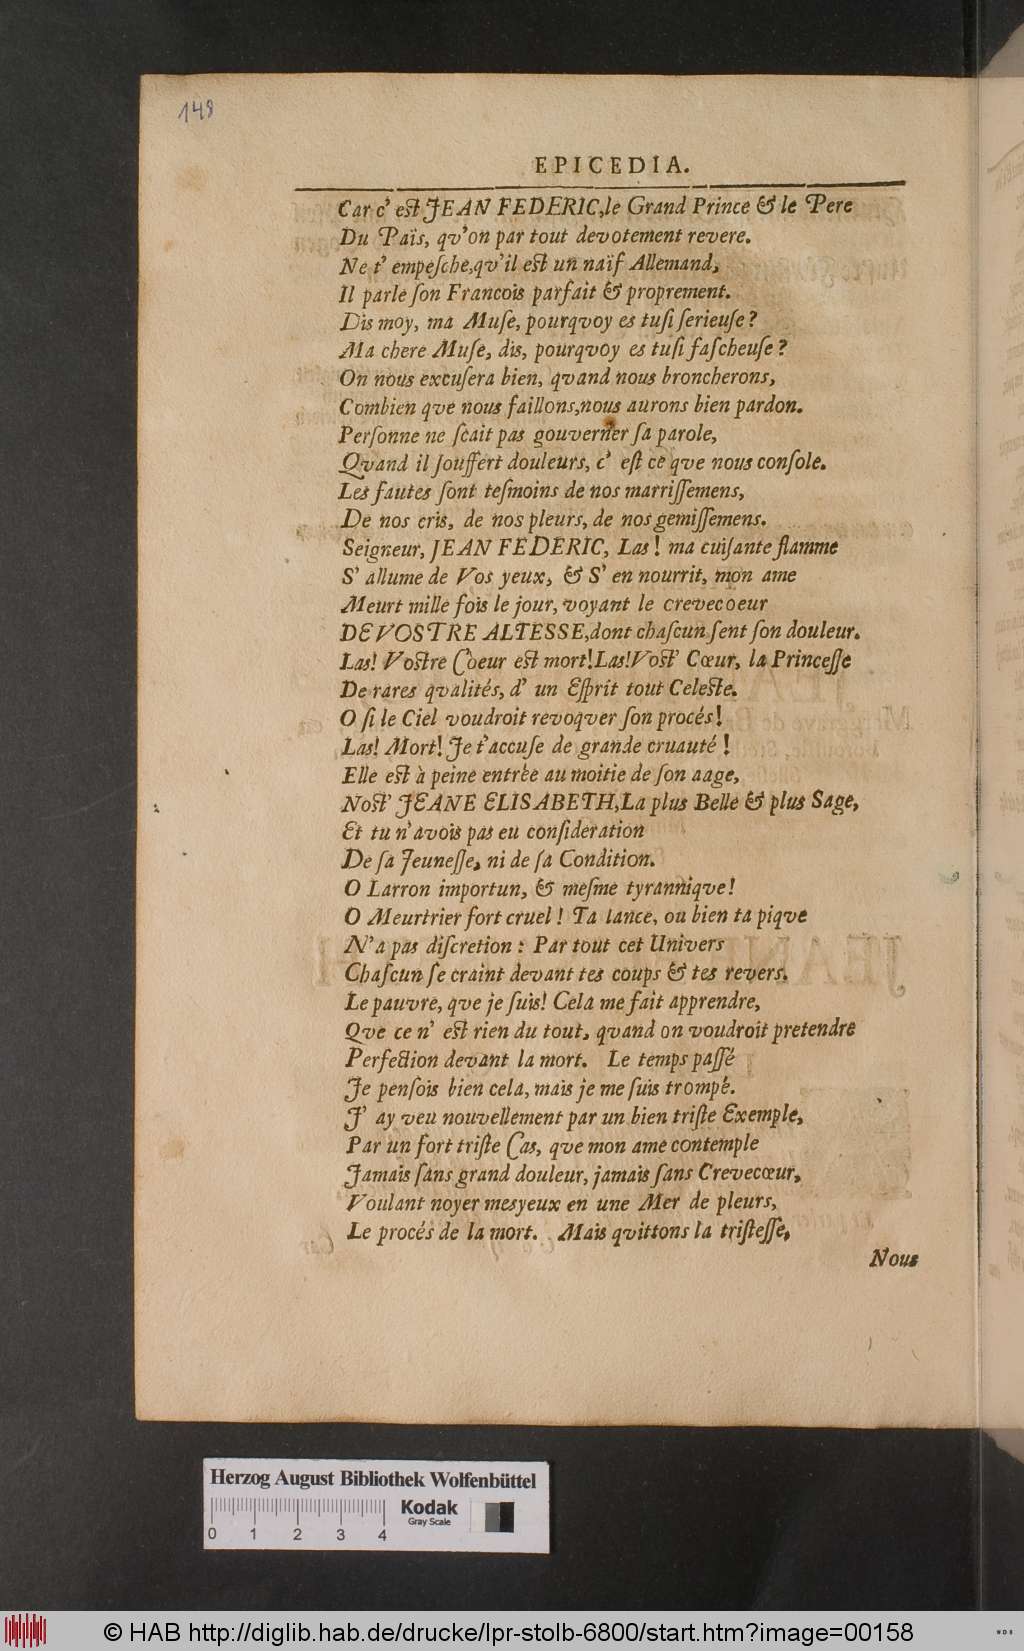 148
EPICEDIA.
Car c' est JEAN FEDERIC,le Grand Prince & le Pere
Du Païs, qv'on par tout devotement revere.
Ne t' empeſche,qv'il est un naïf Allemand,
Il parle ſon Francois parfait & proprement.
Dis moy, ma Muſe, pourqvoy es tuſi ſerieuſe ?
Ma chere Muſe, dis, pourqvoy es tuſi faſcheuſe ?
On nous excuſera bien, qvand nous broncherons,
Combien qve nous faillons,nous aurons bien pardon.
Perſonne ne ſcait pas gouverner ſa parole,
Qvand il ſouffert douleurs, c' eſt ce qve nous conſole.
Les fautes ſont teſmoins de nos marriſſemens,
De nos cris, de nos pleurs, de nos gemiſſemens.
Seigneur, JEAN FEDERIC, Las ! ma cuiſante flamme
S' allume de Vos yeux, & S' en nourrit, mon ame
Meurt mille fois le jour, voyant le crevecoeur
DE VOSTRE ALTESSE,dont chaſcun ſent ſon douleur.
Las! Vostre Coeur est mort!Las!Vost' Cœur, la Princeſſe
De rares qvalités, d' un Eſprit tout Celeste.
O ſi le Ciel voudroit revoqver ſon procés !
Las! Mort! Je t'accuſe de grande cruauté !
Elle est à peine entrée au moitie de ſon aage,
Nost' JEANE ELISABETH,La plus Belle & plus Sage,
Et tu n'avois pas eu conſideration
De ſa Jeuneſſe, ni de ſa Condition.
O Larron importun, & meſme tyranniqve!
O Meurtrier fort cruel ! Ta lance, ou bien ta piqve
N'a pas diſcretion : Par tout cet Univers
Chaſcun ſe craint devant tes coups & tes revers.
Le pauvre, qve je ſuis! Cela me fait apprendre,
Qve ce n' est rien du tout, qvand on voudroit pretendre
Perfection devant la mort. Le temps paſſé
Je penſois bien cela, mais je me ſuis trompé.
J' ay veu nouvellement par un bien triſte Exemple,
Par un fort triſte Cas, qve mon ame contemple
Jamais ſans grand douleur, jamais ſans Crevecœur,
Voulant noyer mesyeux en une Mer de pleurs,
Le procés de la mort. Mais qvittons la triſteſſe,
Nous
Herzog August Bibliothek Wolfenbüttel
0 1 2 3 4
Kodak
Gray Scale
© HAB http://diglib.hab.de/drucke/lpr-stolb-6800/start.htm?image=00158